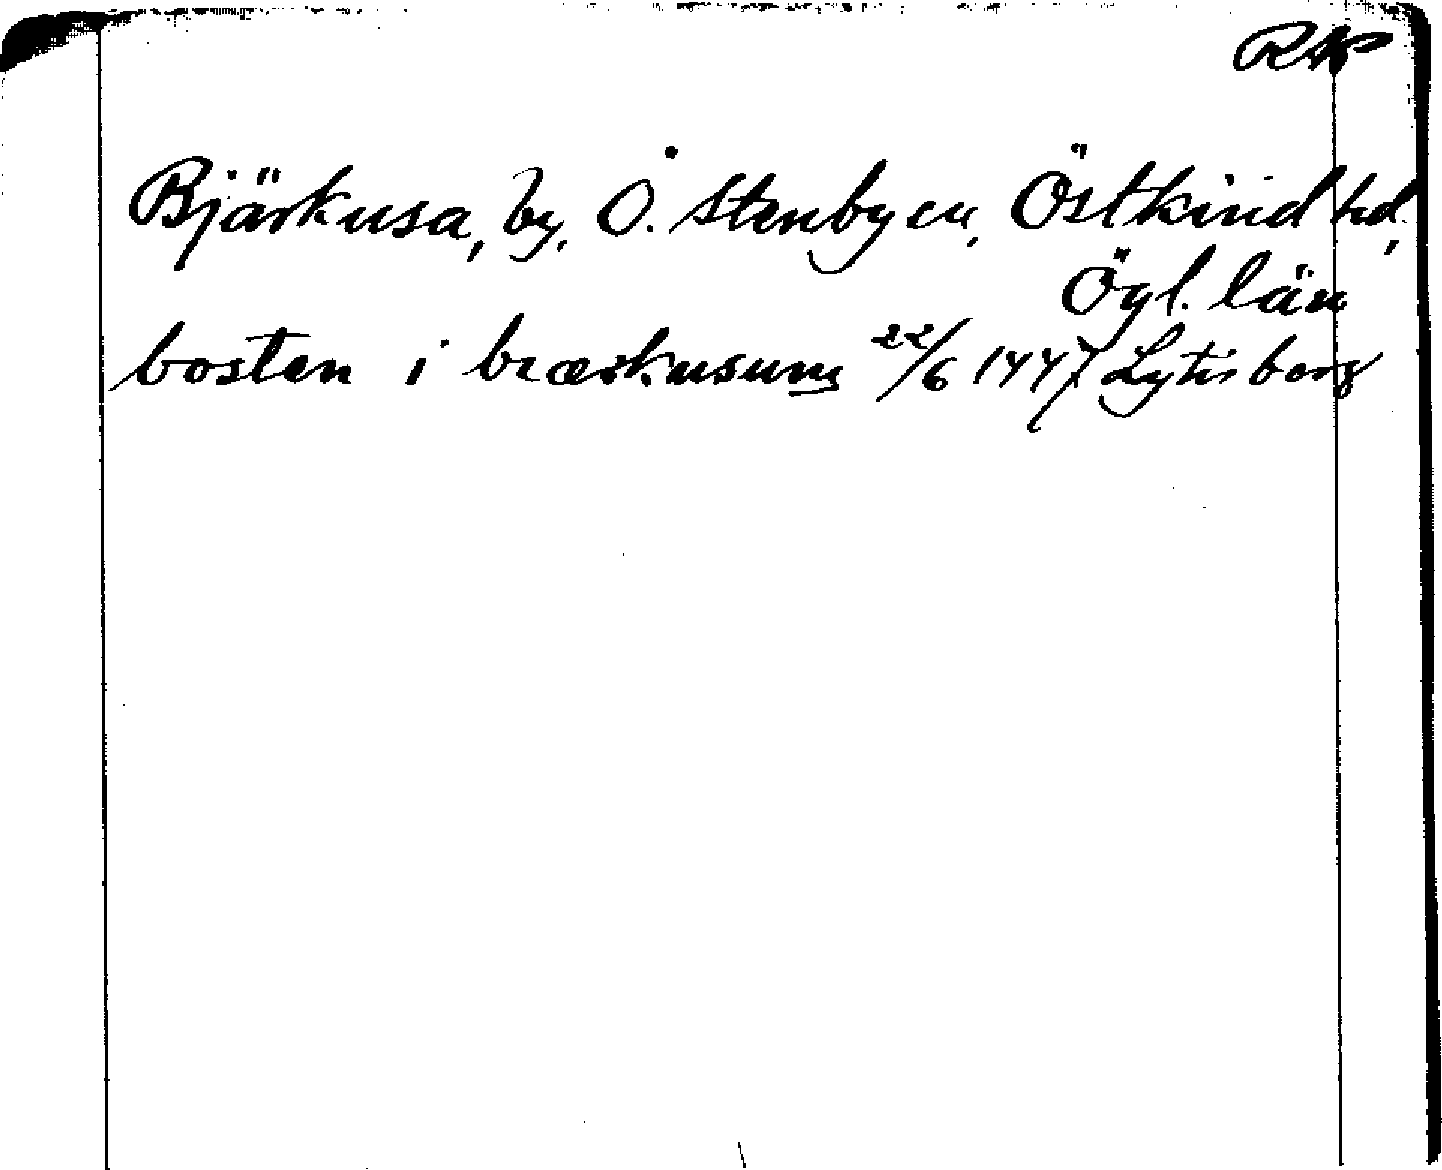 RAP
Bjärkusa, by, Ö. Stenby sn, Östkind hd,
Ögl. län
bosten i biærkusum 22/6 1447 Lytisborg